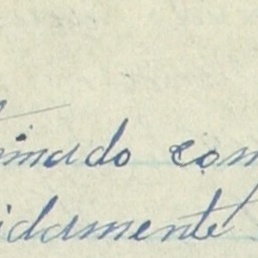 mado com
idamente